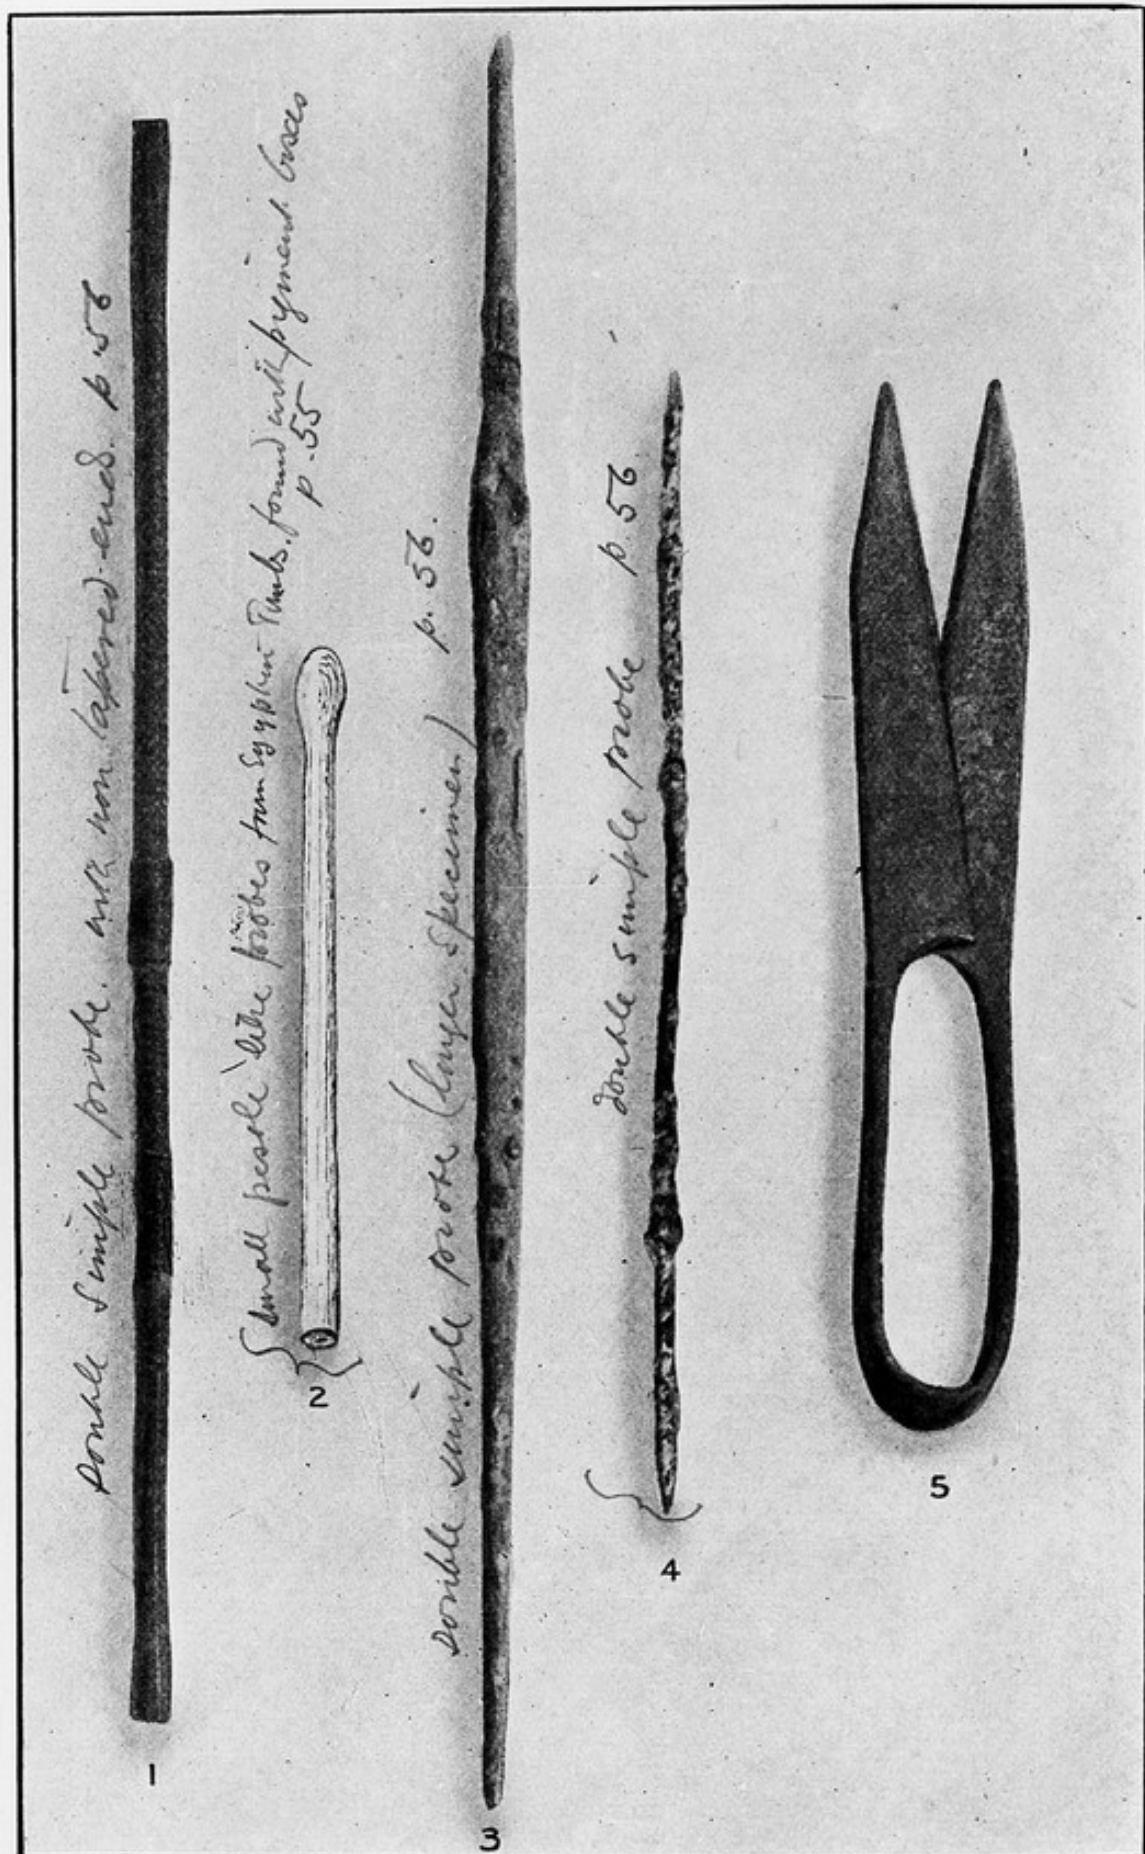 Double simple probe. with non tapered ends. p 56
1
Small pestle like probes from Egyptian Tombs. found with pigment boxes
p. 55
2
Double simple probe (longer specimen) p. 56.
3
double simple probe p. 56.
4
5